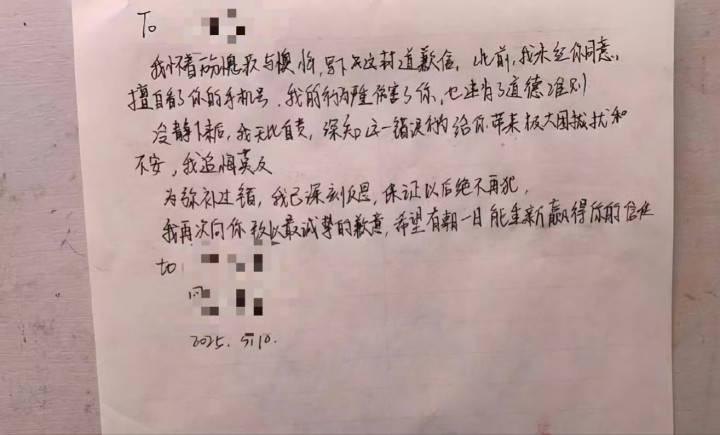 To
我怀着万分愧疚与懊悔，写下这封道歉信，此前，我未经你同意，
擅自看了你的手机号，我的行为严重伤害了你，也违背了道德准则
冷静下来后，我无比自责，深知这一错误行为给你带来极大困扰和
不安，我追悔莫及
为弥补过错，我已深刻反思，保证以后绝不再犯，
我再次向你致以最诚挚的歉意，希望有朝一日能重新赢得你的信任
to
2025. 5.10.